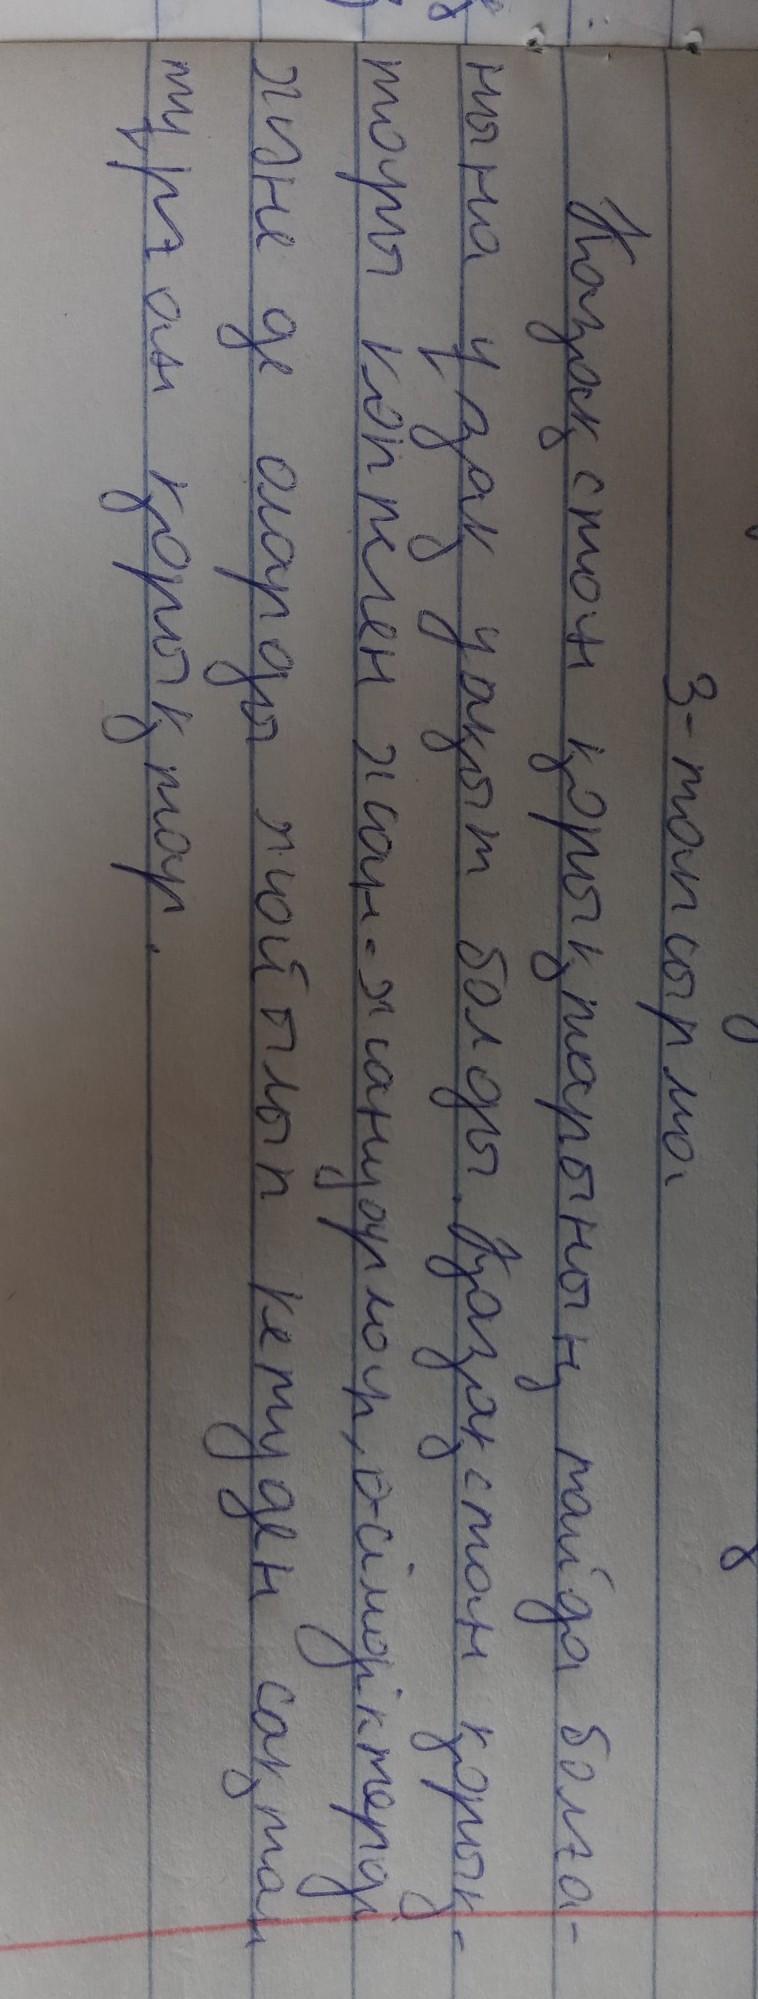 3-тапсырма
Қазақстан қорықтарының пайда болға-
нына ұзақ уақыт болды. Қазақстан қорық-
тары көптеген жан-жануарлар, өсімдіктерді
және де оларды жойылып кетуден сақтап
тұрған қорықтар.